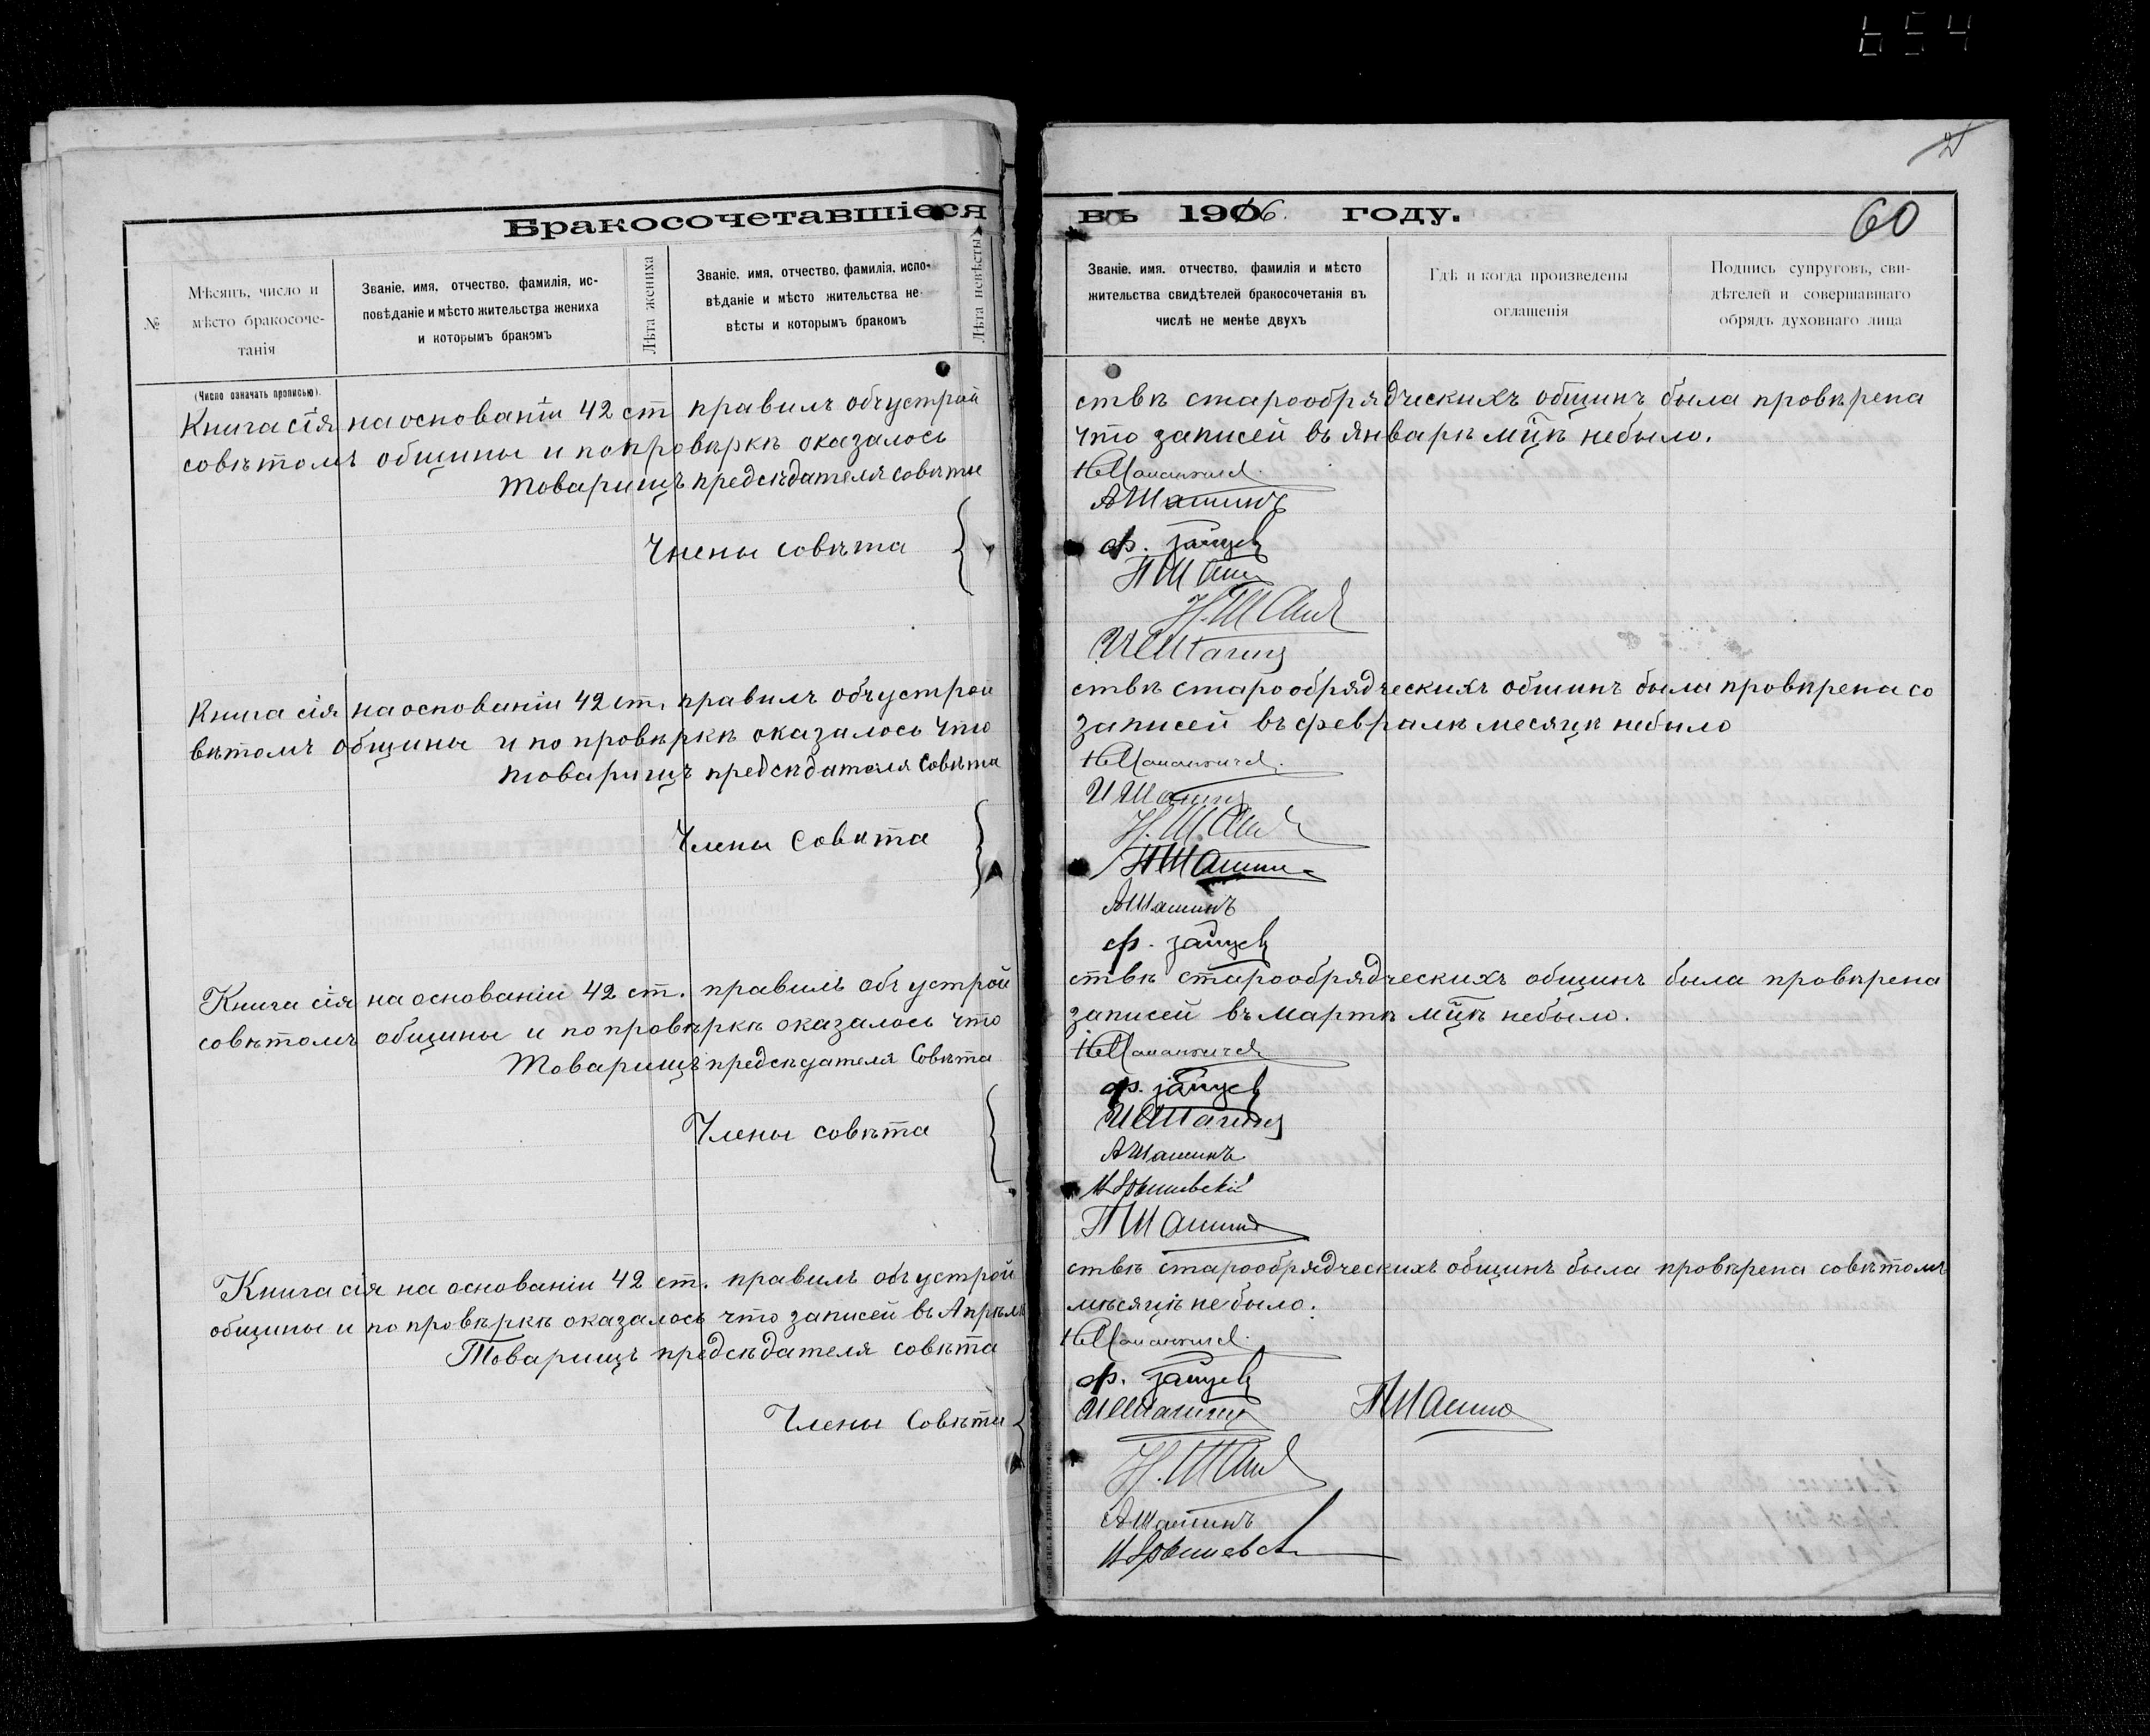 654
21
Бракосочетавшіеся въ 1916 году.
60
№
Мѣсяцъ, число и
мѣсто бракосоче-
танія
(Число означать прописью).
Званіе, имя, отчество, фамилія, ис-
повѣданіе и мѣсто жительства жениха
и которымъ бракомъ
Лѣта жениха
Званіе, имя, отчество, фамилія, испо-
вѣданіе и мѣсто жительства не-
вѣсты и которымъ бракомъ
Лѣта невѣсты
Званіе, имя, отчество, фамилія и мѣсто
жительства свидѣтелей бракосочетанія въ
числѣ не менѣе двухъ
Гдѣ и когда произведены
оглашенія
Подпись супруговъ, сви-
дѣтелей и совершавшаго
обрядъ духовнаго лица
Книга сія на основаніи 42 ст правилъ объ устрой
ствѣ старообрядческихъ общинъ была провѣрена
совѣтомъ общины и по провѣркѣ оказалось
что записей въ Январѣ мцѣ небыло.
Товарищъ предсѣдателя совѣта
АШашинъ
Члены совѣта
Ф. Зайцев
Н.Шаш
ИСШашинъ
Книга сія на основаніи 42 ст. правилъ объ устрой
ствѣ старообрядческихъ общинъ была провѣрена со
вѣтомъ общины и по провѣркѣ оказалось что
записей въ февралѣ месяцѣ небыло
товарищъ предсѣдателя Совѣта
Члены Совѣта
ПШашин
АШашинъ
Ф. Зайцев
Книга сія на основаніи 42 ст. правилъ объ устрой
ствѣ старообрядческихъ общинъ была провѣрена
совѣтомъ общины и по провѣркѣ оказалось что
записей въ мартѣ мцѣ небыло.
Товарищъ предсѣдателя Совѣта
Ф. Зайцев
Члены совѣта
ИСШашинъ
АШашинъ
ПШашинъ
Книга сія на основаніи 42 ст. правилъ объ устрой
ствѣ старообрядческихъ общинъ была провѣрена совѣтомъ
общины и по провѣркѣ оказалось что записей въ Апрѣлѣ
мѣсяцѣ не было.
Товарищъ предсѣдателя совѣта
Ф. Зайцев
Члены Совѣта
ИСШашинъ
ПШашин
АШашинъ